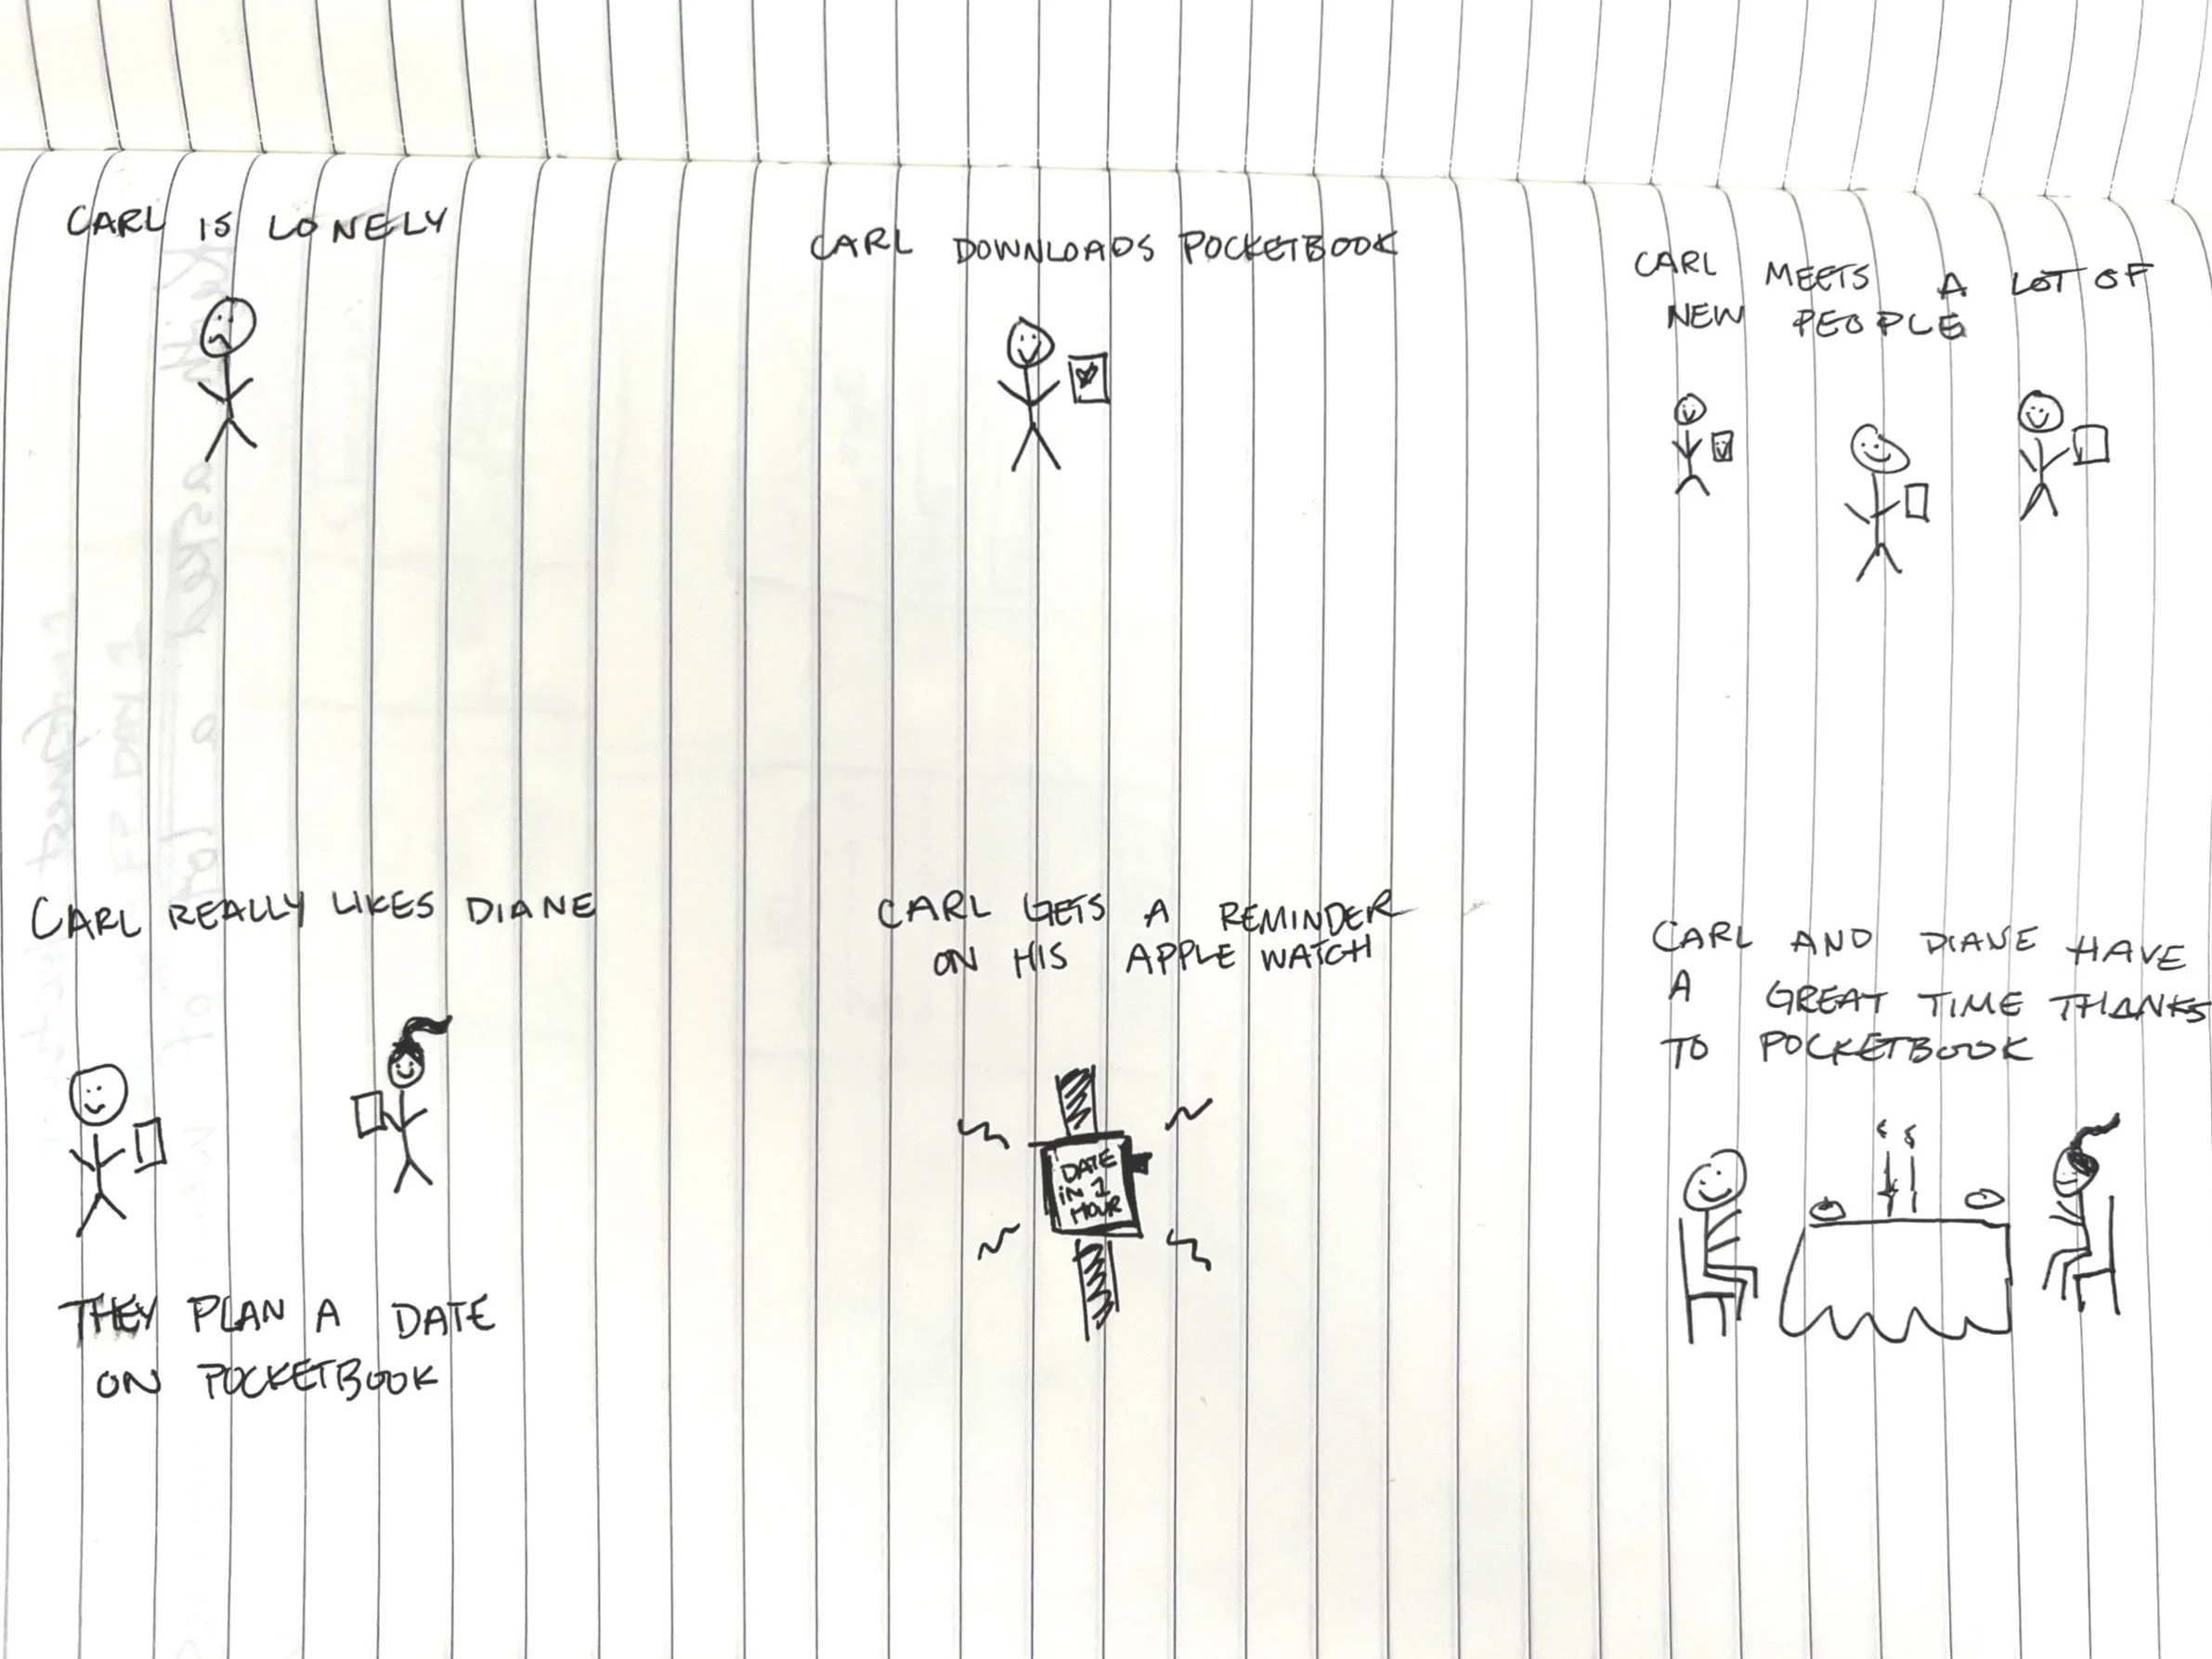 CARL IS LONELY
CARL DOWNLOADS POCKETBOOK
CARL MEETS A LOT OF
NEW PEOPLE
CARL REALLY LIKES DIANE
THEY PLAN A DATE
ON POCKETBOOK
CARL GETS A REMINDER
ON HIS APPLE WATCH
DATE
IN 1
HOUR
CARL AND DIANE HAVE
A GREAT TIME THANKS
TO POCKETBOOK